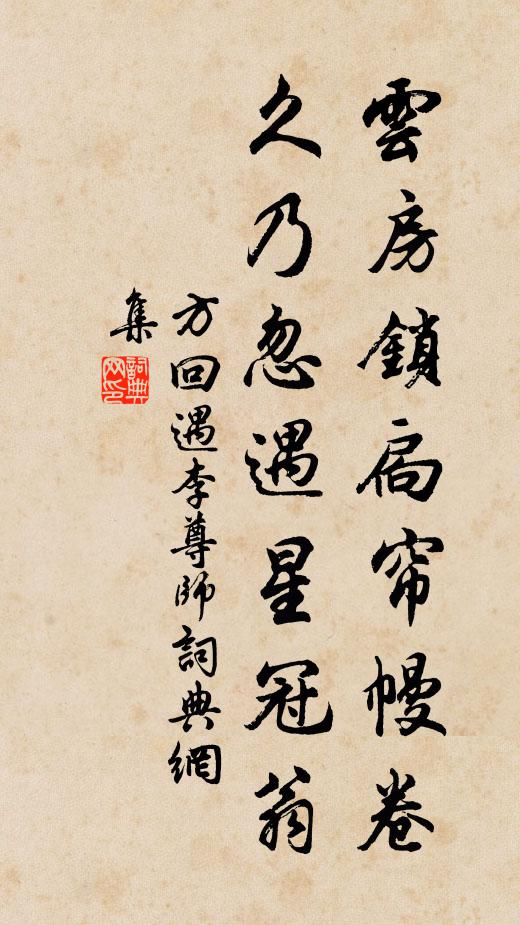 雲房鎖扃帘幔卷
久乃忽遇星冠翁
方回遇李尊師詞典網
集
詞典网印